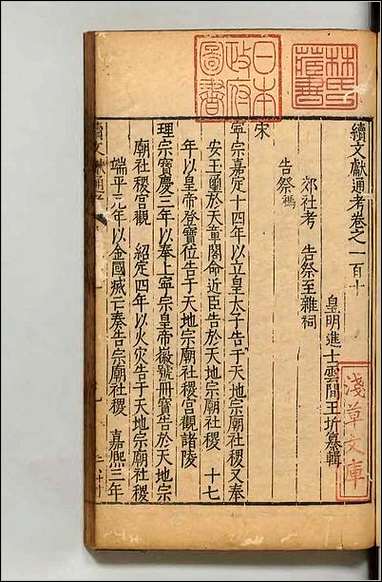 續文獻通考卷之一百十
皇明進士雲間王圻纂輯
郊社考 告祭至雜祠
告祭禡
宋
寧宗嘉定十四年以立皇太子告于天地宗廟社稷又奉
安玉圖於天章閣命近臣告於天地宗廟社稷 十七
年以皇帝登寶位告于天地宗廟社稷宮觀諸陵
理宗寶慶三年以奉上寧宗皇帝徽號冊寶告於天地宗
廟社稷宮觀 紹定四年以火災告于天地宗廟社稷
端平元年以金國滅亡奏告宗廟社稷 嘉熙三年
續文獻通考
日本
政府
圖書
林氏
藏書
淺草文庫